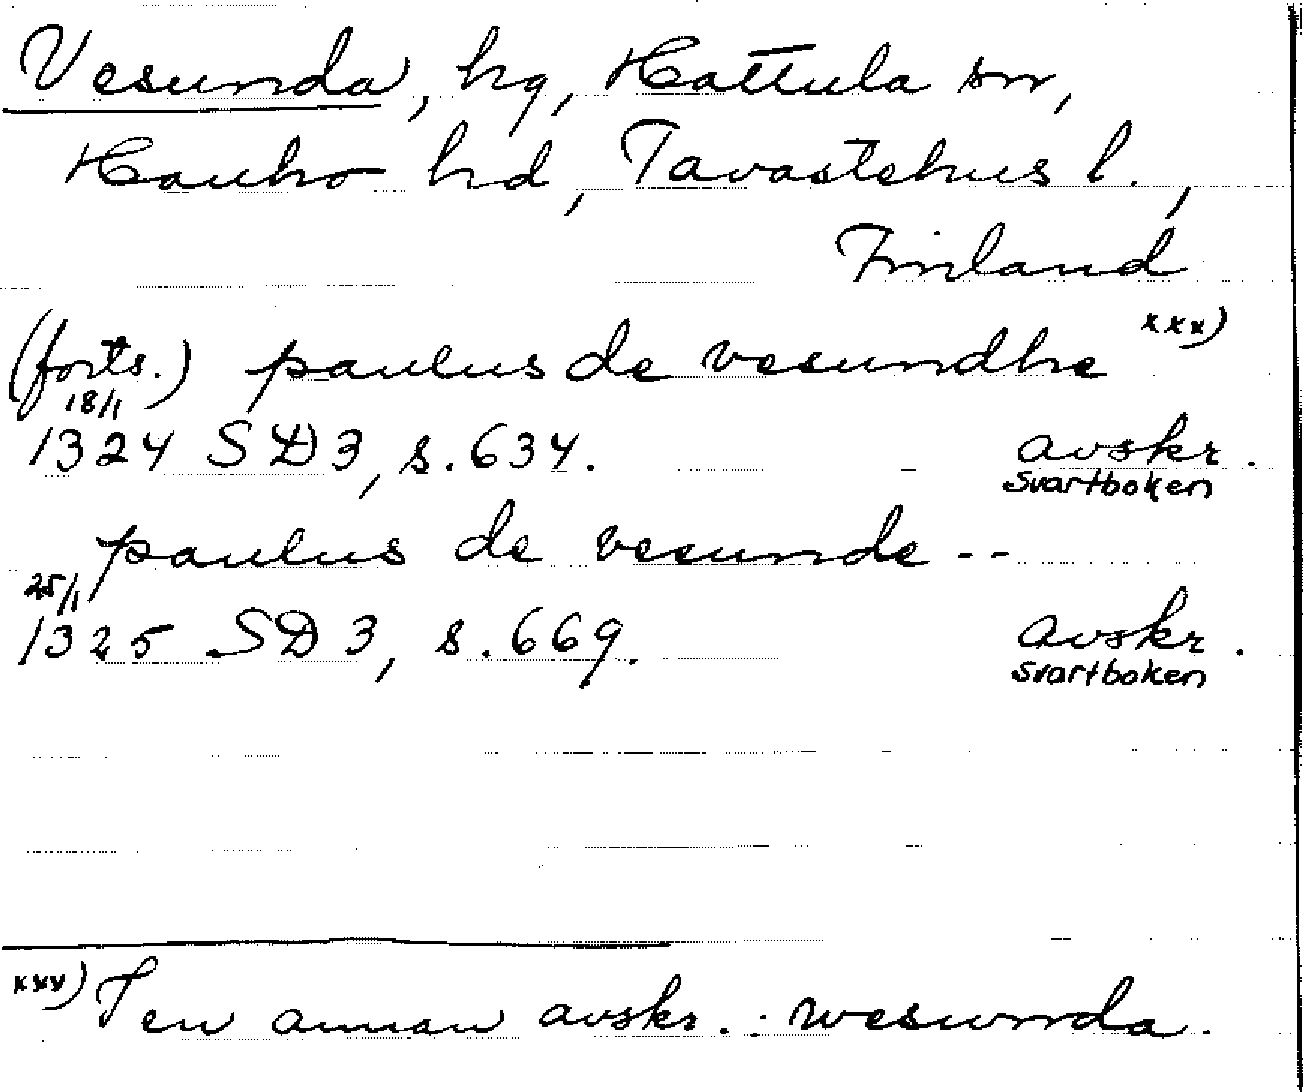 Vesunda, hg, Hattula sn,
Hauho hd, Tavastehus l.,
Finland
(forts.) paulus de vesundhe xxx)
18/1
1324 SD 3, s. 634. avskr.
Svartboken
paulus de vesunde --
25/1
1325 SD 3, s. 669. avskr.
Svartboken
xxx) I en annan avskr.: wesunda.